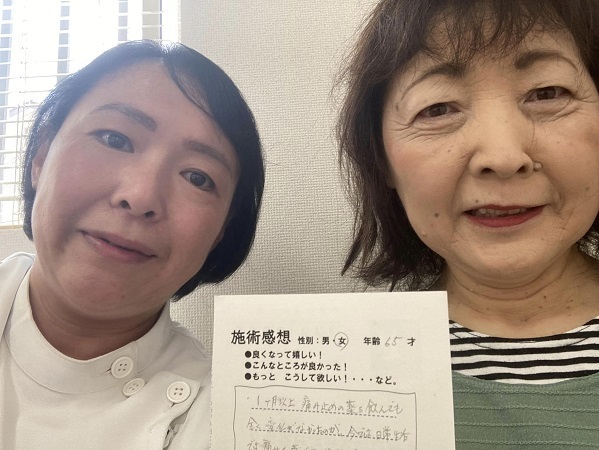 施術感想 性別：男・女 年齢 65 才
●良くなって嬉しい！
●こんなところが良かった！
●もっと こうして欲しい！・・・など。
・1ヶ月以上 痛み止めの薬を飲んでも
全く変化がなかったのが、今では日常生活